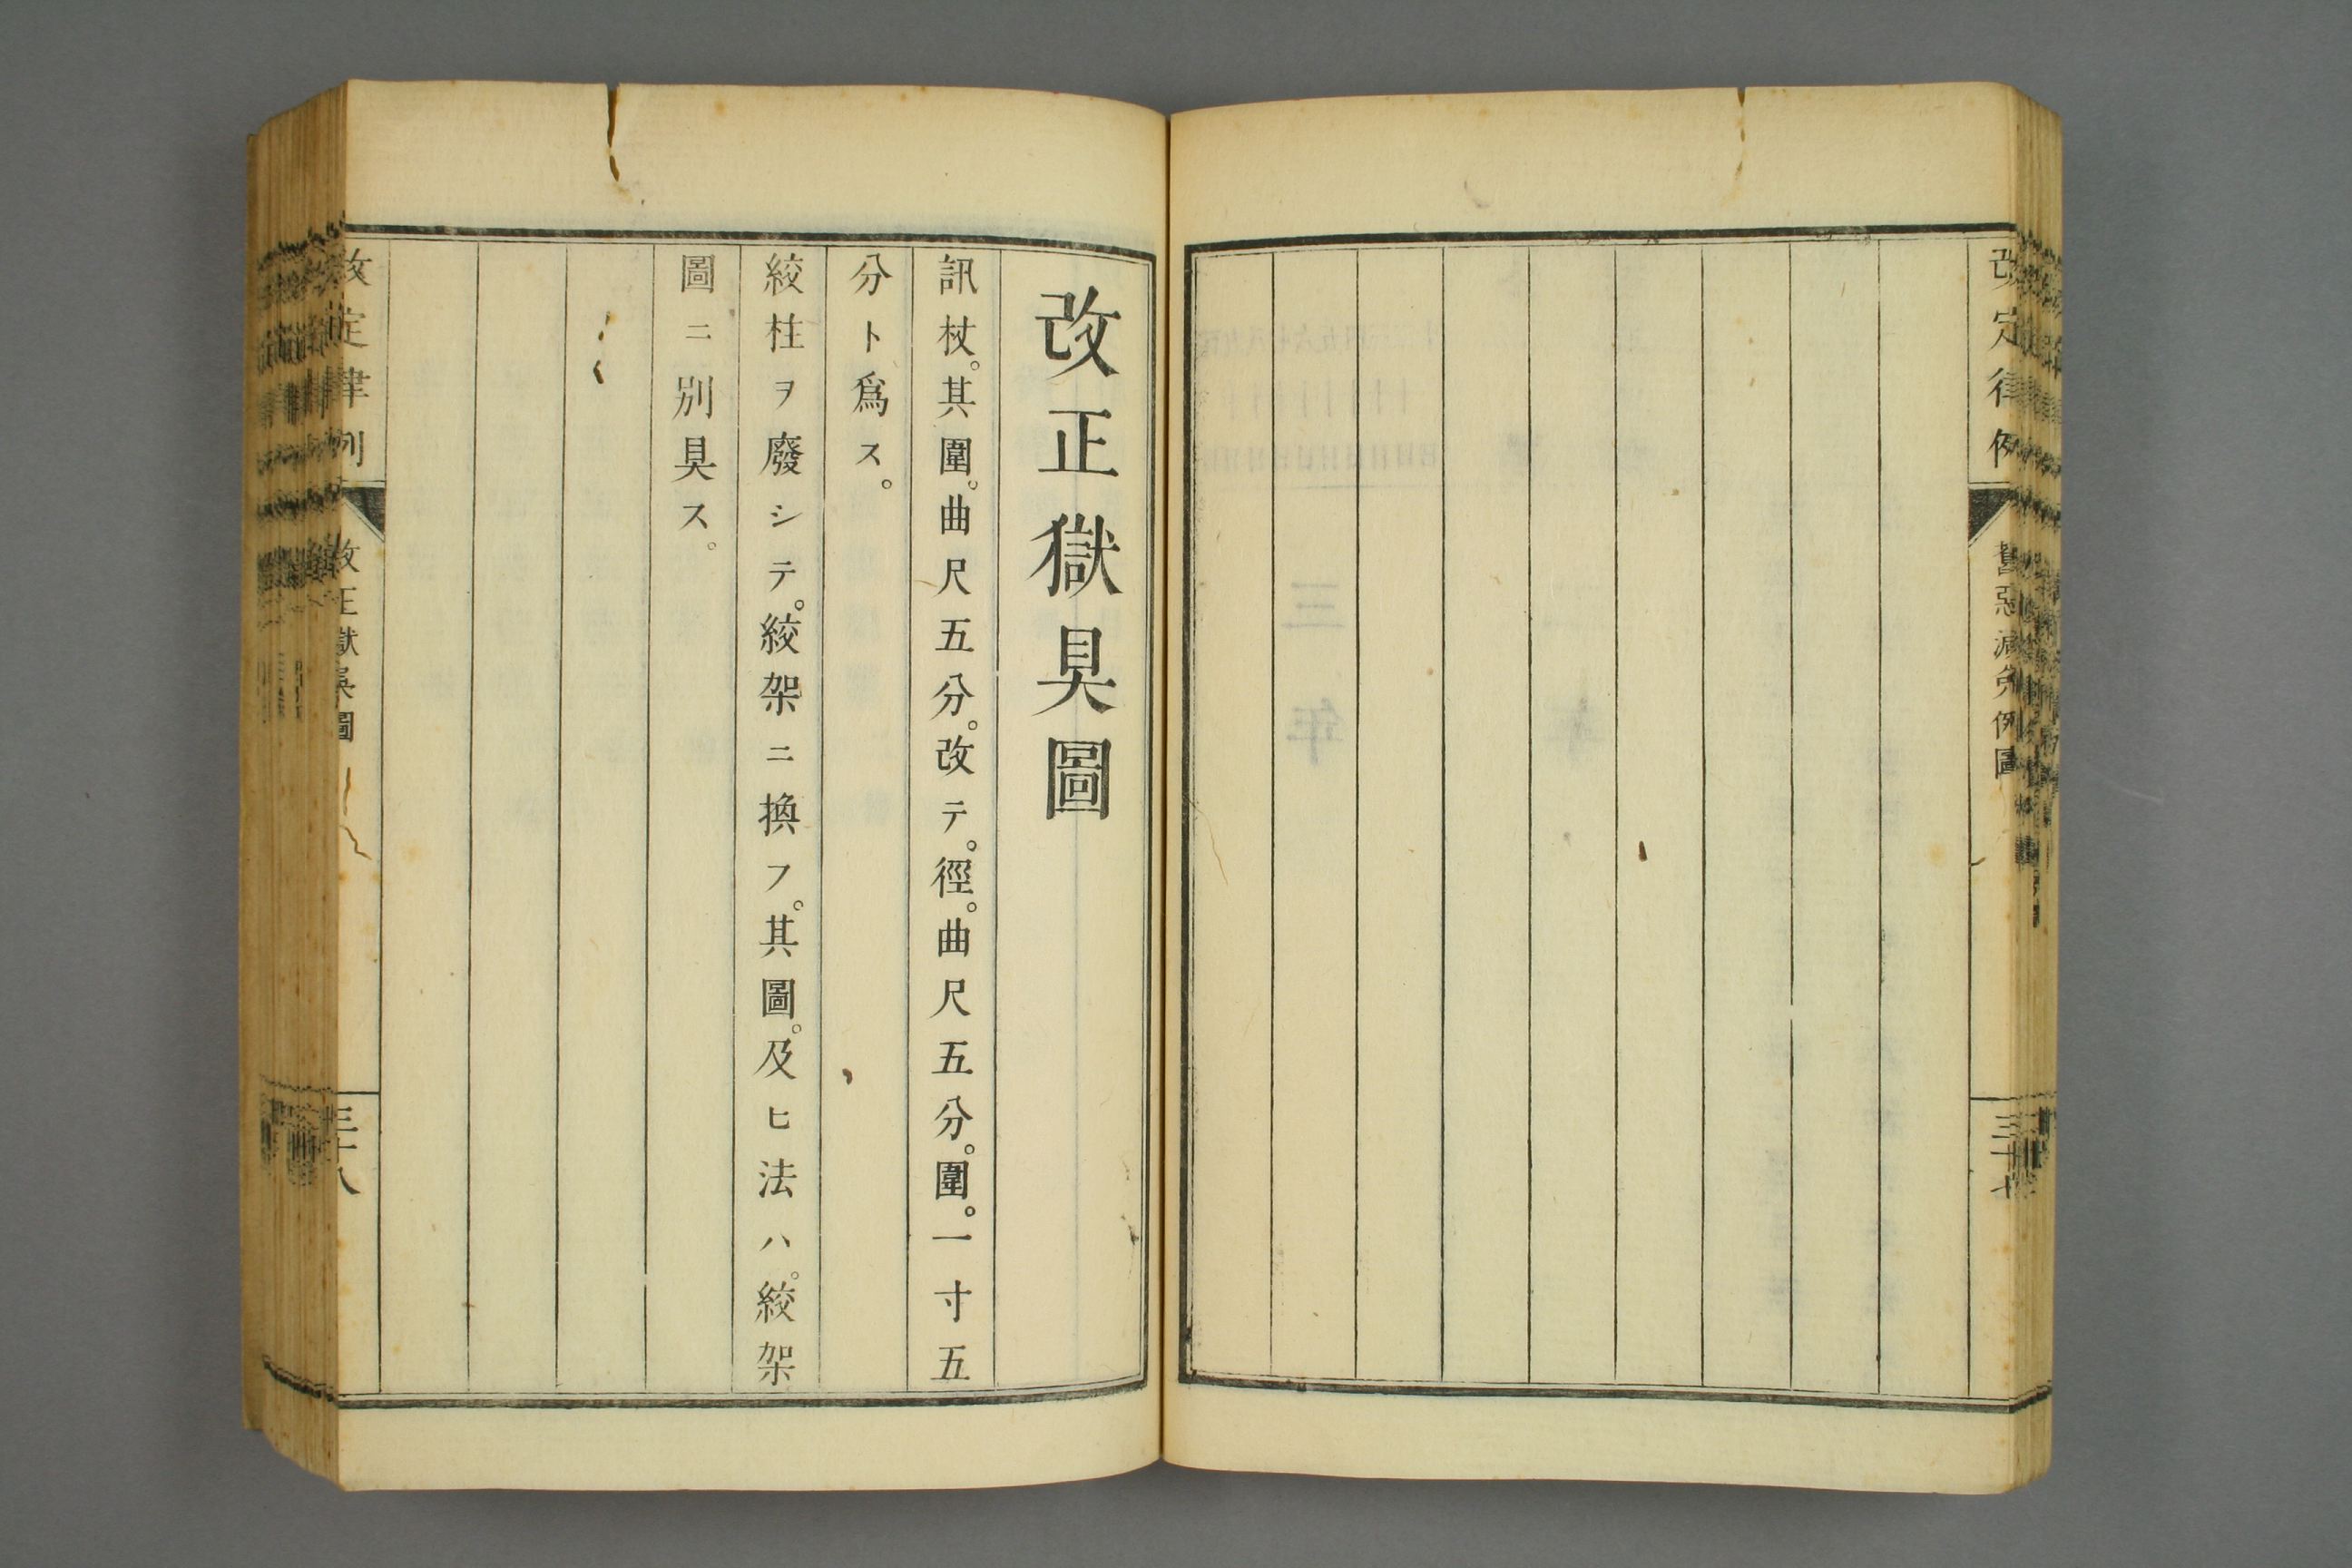 改定律例
舊惡減免例圖
三十七
改正獄具圖
訊杖。其圍。曲尺五分。改テ。徑。曲尺五分。圍。一寸五
分ト爲ス。
絞柱ヲ廢シテ。絞架ニ換フ。其圖。及ヒ法ハ。絞架
圖ニ別具ス。
改定律例
改正獄具圖
三十八